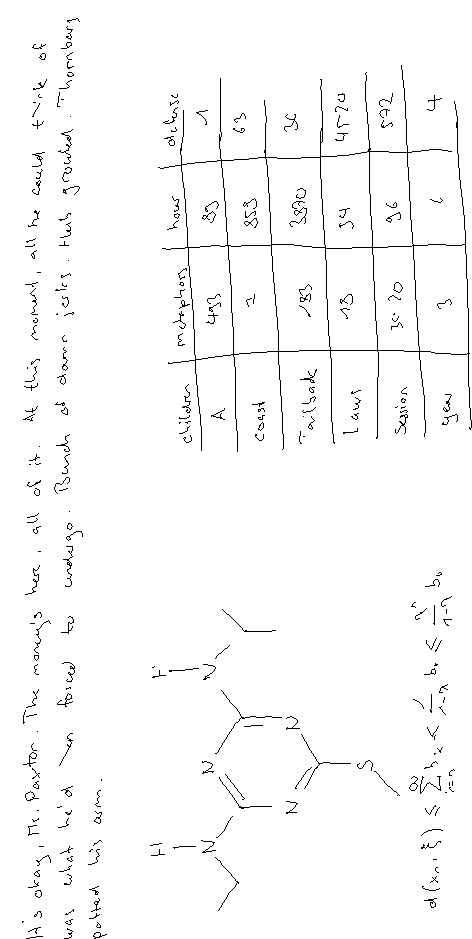 It's okay, Mr. Paxton. The money's here, all of it. At this moment, all he could think of
was what he'd forced to undergo. Bunch of damn jerks. growled. Thornbury
patted his arm.
H H
N N N
N N
S
children metaphors hour disease
A 493 89 1
Coast 2 853 63
Tailback 183 3870 30
Laws 18 34 4520
Session 30 20 96 572
year 3 6 4